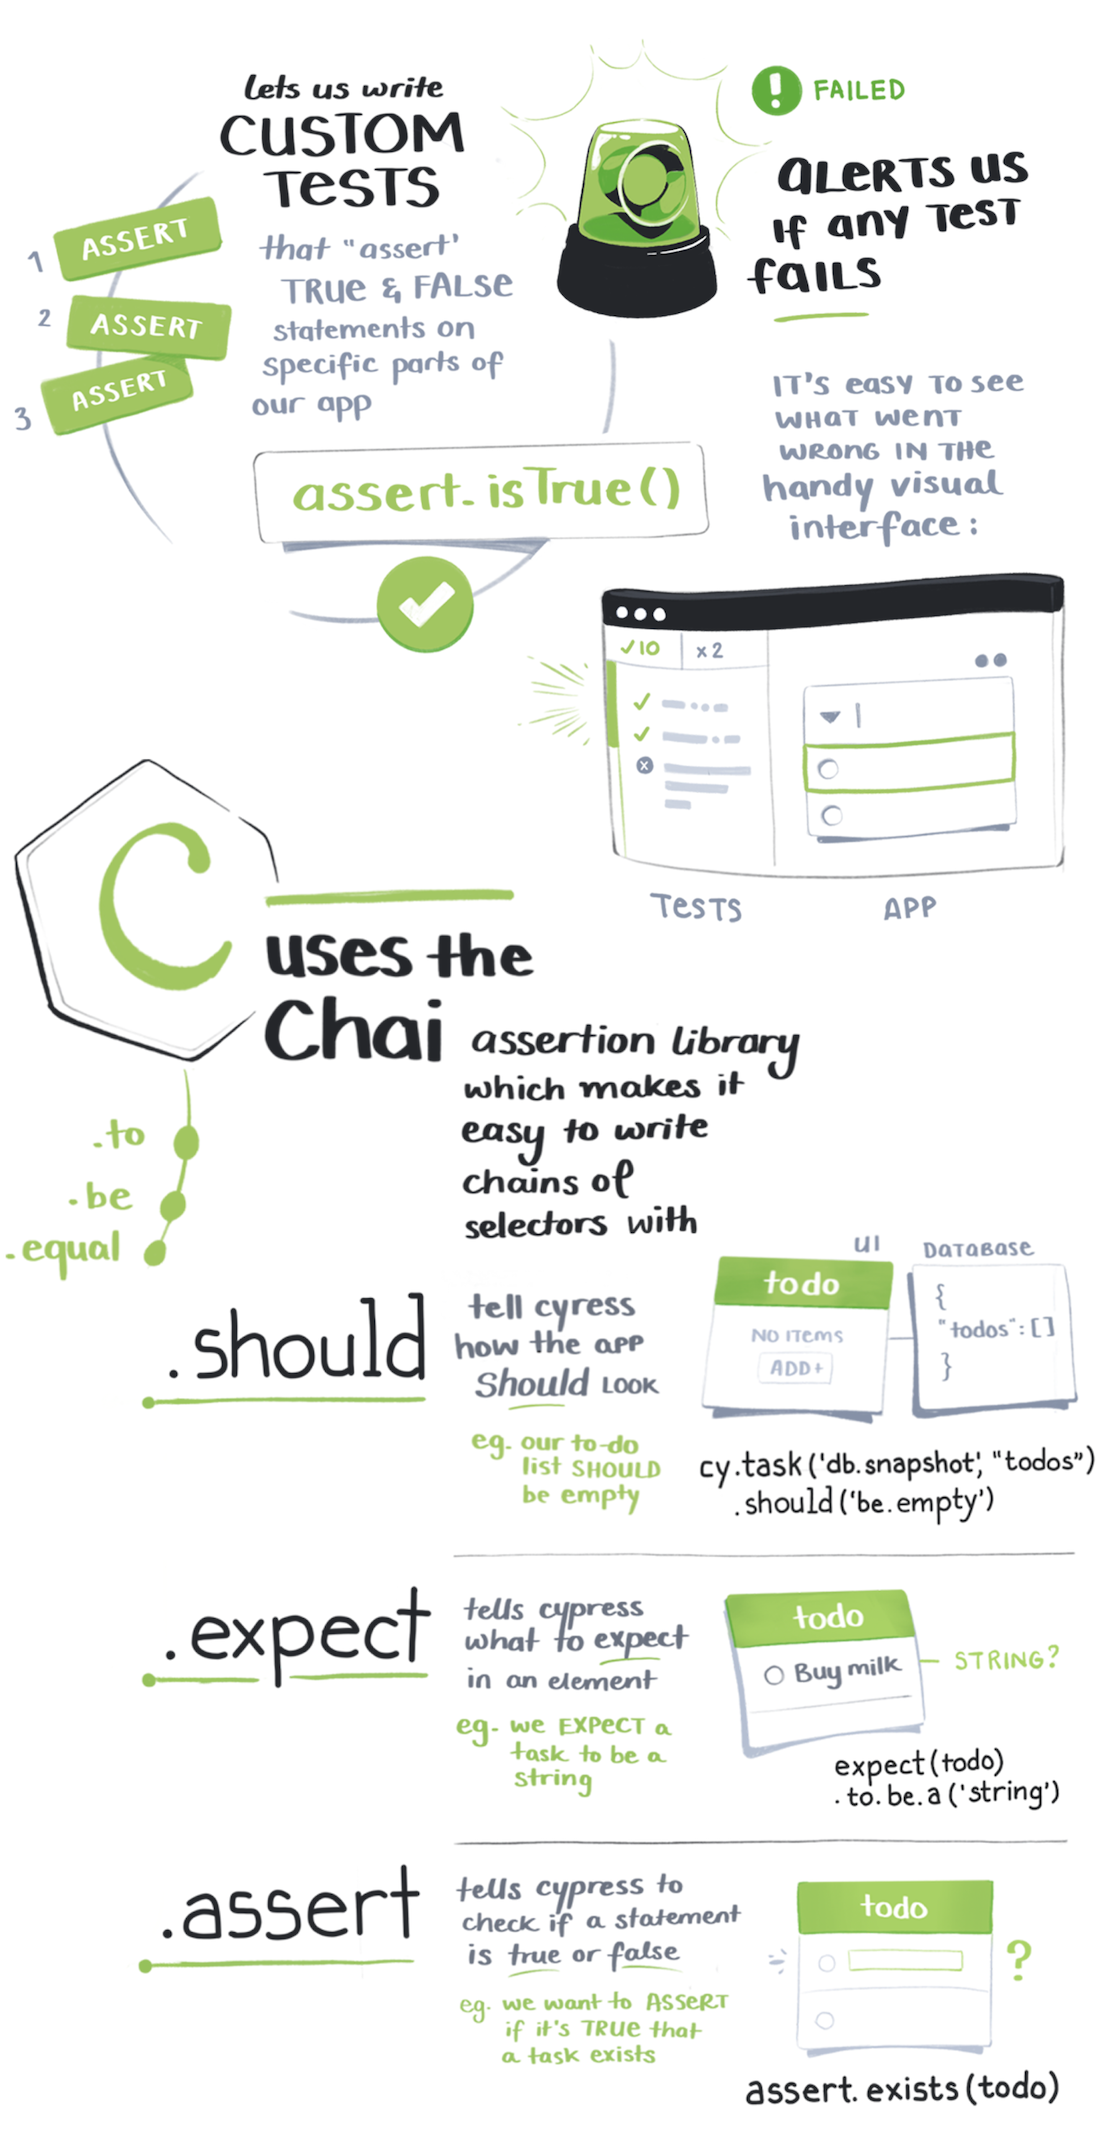 lets us write
CUSTOM
TESTS
that "assert'
TRue & FALSe
statements on
specific parts of
our app
1 ASSERT
2 ASSERT
3 ASSERT
! FAILED
ALERTS US
If any TEST
fails
IT'S easy TO see
WHAT WenT
WRONG IN THe
handy visual
interface:
assert.isTrue()
✓10 x 2
TeSTS
APP
C
uses the
Chai assertion library
which makes it
easy to write
chains of
selectors with
.to
.be
.equal
.should
tell cyress
how the app
Should LOOK
eg. our to-do
list SHOULD
be empty
UI
todo
NO ITEMS
ADD+
DATABASE
{
"todos": []
}
cy.task('db.snapshot', "todos")
.should('be.empty')
.expect
tells cypress
what to expect
in an element
eg. we EXPECT a
task to be a
string
todo
Buy milk
STRING?
expect(todo)
.to.be.a('string')
.assert
tells cypress to
check if a statement
is true or false
eg. we want to ASSeRT
if it's TRUE that
a task exists
todo
?
assert.exists(todo)